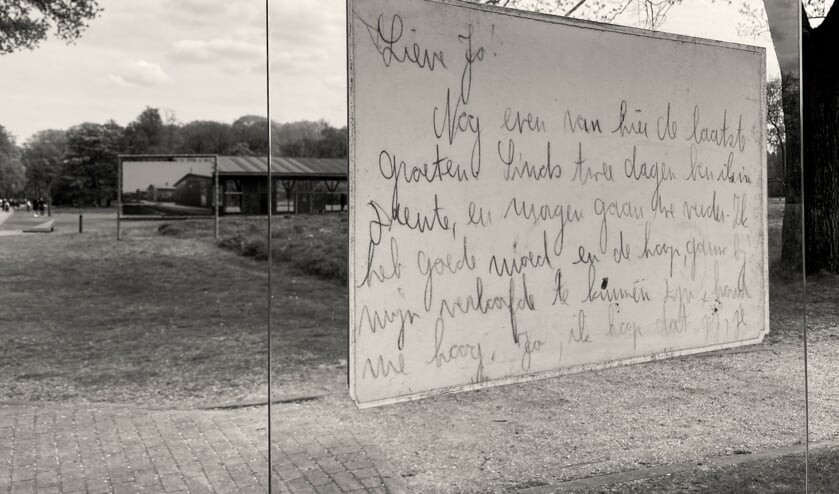 Lieve Jo!
Nog even van hier de laatste
groeten. Sinds twee dagen ben ik in
Drente, en morgen gaan we verder. Ik
heb goede moed en de hoop gauw bij
mijn verloofde te kunnen zijn,
me hoog. Jo, ik hoop dat